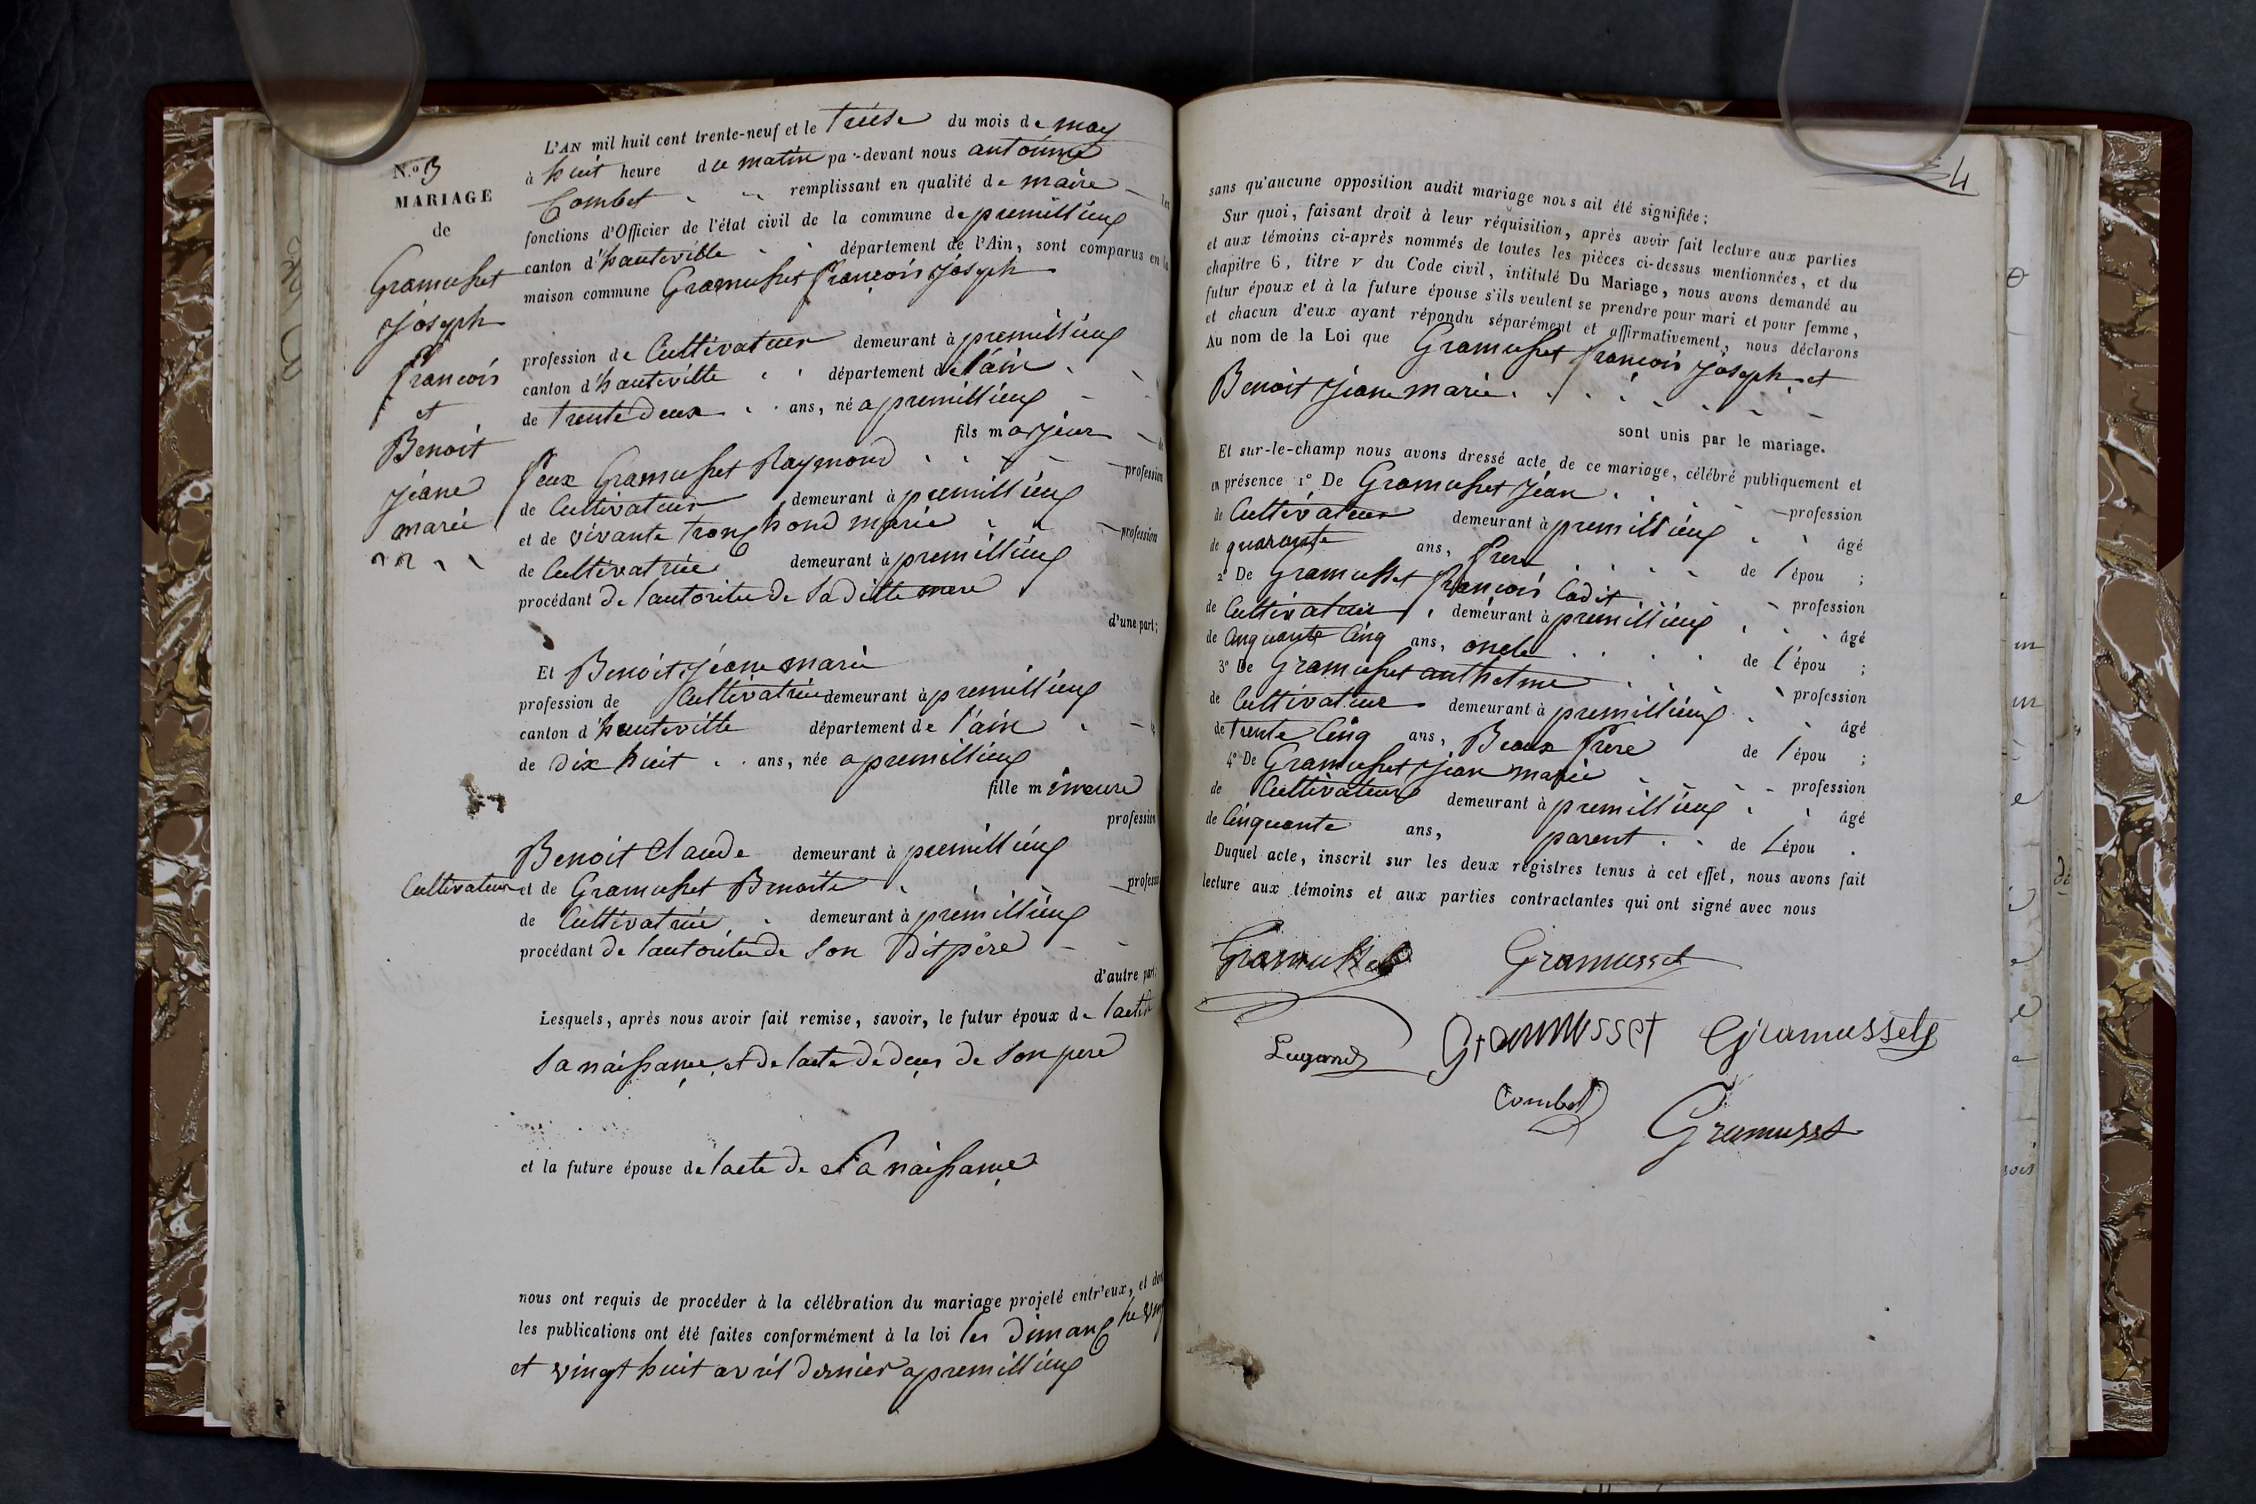 N.o 3
MARIAGE
de
Gramusset
Joseph
françois
et
Benoit
jéane
marie
L'AN mil huit cent trente-neuf et le treise du mois de may
à huit heure du matin par-devant nous antoinne
Combet remplissant en qualité de maire les
fonctions d'Officier de l'état civil de la commune de premillieug
canton d'hauteville département de l'Ain, sont comparus en la
maison commune Gramusset françois joseph
profession de Cultivateur demeurant à premillieug
canton d'hauteville département de l'ain
de trente deux ans, né a premillieug
fils majeur de
feux Gramusset Raymond profession
de Cultivateur demeurant à premillieug
et de vivante tronchond marie profession
de Cultivatrice demeurant à premillieug
procédant de lautoritée de sa ditte mere
d'une part;
Et Benoit jéane marie
profession de Cultivatrice demeurant à premillieug
canton d'hauteville département de l'ain
de dix huit ans, née a premillieug
fille mineure
profession
Benoit Claude demeurant à premillieug
Cultivateur et de Gramusset Benoite profession
de Cultivatrice demeurant à premillieug
procédant de lautoritée de son dit père
d'autre part;
Lesquels, après nous avoir fait remise, savoir, le futur époux de lacte de
sa naissance et de lacte de deces de son pere
et la future épouse de lacte de sa naissance
nous ont requis de procéder à la célébration du mariage projeté entr'eux, et dont
les publications ont été faites conformément à la loi les dimanche vingt
et vingt huit avril dernier a premillieug
4
sans qu'aucune opposition audit mariage nous ait été signifiée;
Sur quoi, faisant droit à leur réquisition, après avoir fait lecture aux parties
et aux témoins ci-après nommés de toutes les pièces ci-dessus mentionnées, et du
chapitre 6, titre v du Code civil, intitulé Du Mariage, nous avons demandé au
futur époux et à la future épouse s'ils veulent se prendre pour mari et pour femme,
et chacun d'eux ayant répondu séparément et affirmativement, nous déclarons
Au nom de la Loi que Gramusset françois joseph et
Benoit jéane marie
sont unis par le mariage.
Et sur-le-champ nous avons dressé acte de ce mariage, célébré publiquement et
en présence 1° De Gramusset jéan profession
de Cultivateur demeurant à premillieug âgé
de quarante ans, frere de l'épou ;
2° De Gramusset françois Cadit profession
de Cultivateur demeurant à premillieug âgé
de Cinquante Cinq ans, oncle de l'épou ;
3° De Gramusset anthelme profession
de Cultivateur demeurant à premillieug âgé
de trente Cinq ans, Beaux frere de l'épou ;
4° De Gramusset jéan marie profession
de Cultivateur demeurant à premillieug âgé
de Cinquante ans, parent de L'épou .
Duquel acte, inscrit sur les deux régistres tenus à cet effet, nous avons fait
lecture aux témoins et aux parties contractantes qui ont signé avec nous
Gramusset Gramusset
Lugand Gramusset Gramusset
Combet
Gramusset